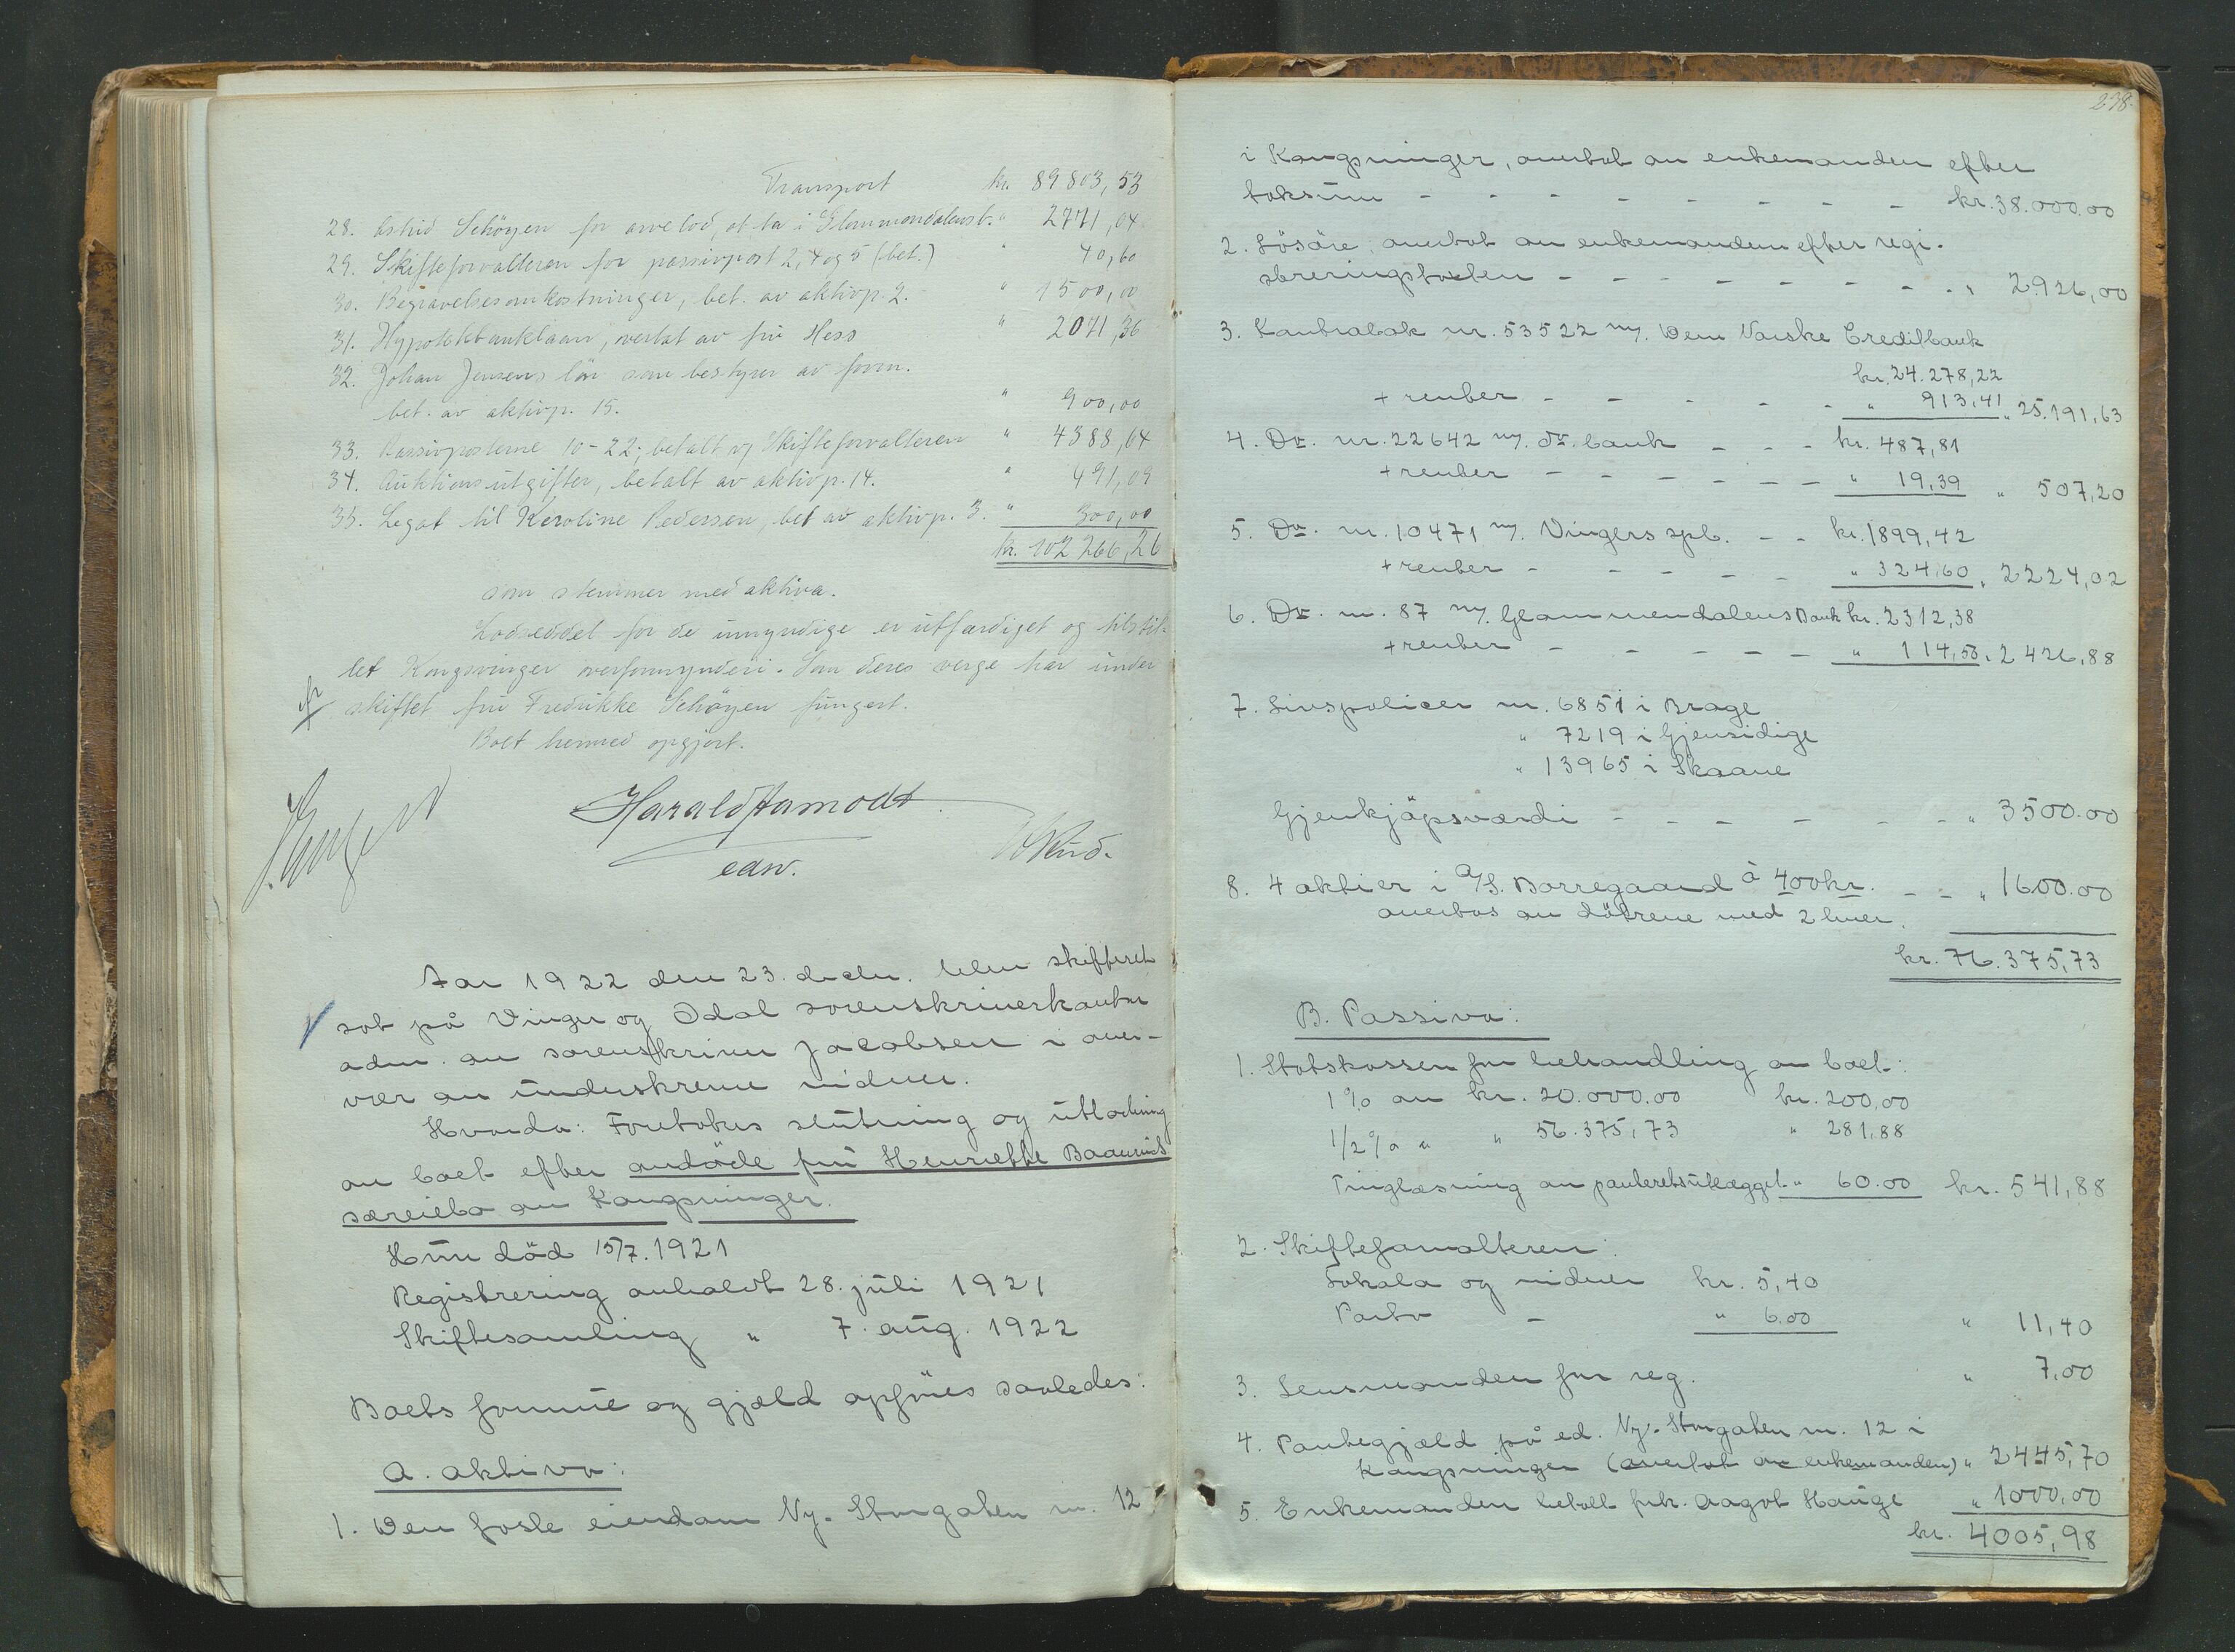 Transport kr. 89803,53
28. Astrid Schöyen for arvelod, at ta i Glommendalensb. " 2771,04
29. Skifteforvalteren for passivpost 2, 4 og 5 (bet.) " 40,60
30. Begravelsesomkostninger, bet. av aktivp. 2. " 1500,00
31. Hypotekbanklaan, overtat av fru Hess " 2071,36
32. Johan Jensens lön som bestyrer av forr.
bet. av aktivp. 15. " 900,00
33. Passivposterne 10-22, betalt av Skifteforvalteren " 4388,64
34. Auktionsutgifter, betalt av aktivp. 14. " 491,09
35. Legat til Karoline Pedersen, bet av aktivp. 3. " 300,00
kr. 102266,26
som stemmer med aktiva.
Lodseddel for de umyndige er utfærdiget og tilstil-
let Kongsvinger overformynderi. Som deres verge har under
skiftet fru Fredrikke Schöyen fungert.
Boet hermed opgjort.
Harald Aamodt
edsv.
Aar 1922 den 23. decbr. blev skifteret
sat på Vinger og Odal sorenskriverkontor
adm. av sorenskriver Jacobsen i over-
vær av underskrevne vidner.
Hvorda: Foretokes slutning og utlodning
av boet efter avdöde fru Henriette Baarsruds
særeiebo av Kongsvinger.
Hun död 15/7. 1921
Registrering avholdt 28. juli 1921
Skiftesamling " 7. aug. 1922
Boets formue og gjæld opføres saaledes:
A. Aktiva:
1. Den faste eiendom Ny. Storgaten nr. 12
238.
i Kongsvinger, overtat av enkemanden efter
taksum - - - - - - - - kr. 38.000.00
2. Lösöre overtat av enkemanden efter regi-
streringstaksten - - - - - - - " 2926,00
3. Kontrabok nr. 53522 m/. Den Norske Creditbank
kr. 24.278,22
+ renter - - - - - " 913,41 " 25.191,63
4. Do. nr. 22642 m/. do. bank - - - kr. 487,81
+ renter - - - - - - " 19,39 " 507,20
5. Do. nr. 10471 m/. Vingers spb. - - kr. 1899,42
+ renter - - - - - " 324,60 " 2224,02
6. Do. nr. 87 m/. Glommendalens Bank kr. 2312,38
+ renter - - - - - " 114,50 " 2426,88
7. Livspolicer nr. 6851 i Brage
" 7219 i Gjensidige
" 13965 i Skaane
Gjenkjöpsværdi - - - - - - - " 3500.00
8. 4 aktier i A/S. Borregaard à 400 kr. - - " 1600.00
overtas av døtrene med 2 hver.
kr. 76.375,73
B. Passiva:
1. Statskassen for behandling av boet:
1% av kr. 20.000.00 kr. 200,00
1/2% " " 56.375,73 " 281,88
Tinglæsning av panteretsutlegget " 60.00 kr. 541,88
2. Skifteforvalteren:
Lokale og vidner kr. 5,40
Porto - " 6.00 " 11,40
3. Lensmanden for reg. " 7,00
4. Pantegjæld på ed. Ny. Storgaten nr. 12 i
Kongsvinger (overtat av enkemanden) " 2445,70
5. Enkemanden betalt frk. Aagot Hauge " 1000,00
kr. 4005,98